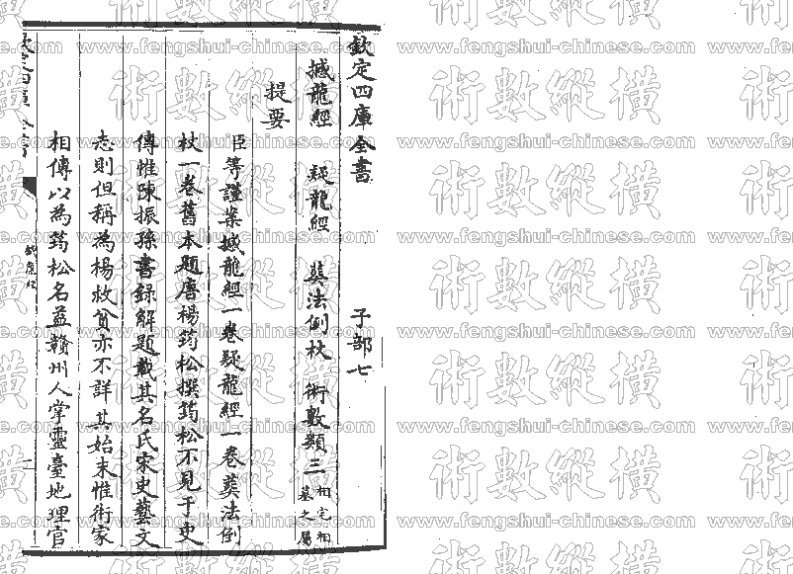 欽定四庫全書 子部七
撼龍經 疑龍經 葬法倒杖 術數類三 相宅相墓之屬
提要
臣等謹案撼龍經一卷疑龍經一卷葬法倒
杖一卷舊本題唐楊筠松撰筠松不見于史
傳惟陳振孫書錄解題載其名氏宋史藝文
志則但稱為楊救貧亦不詳其始末惟術家
相傳以為筠松名益贛州人掌靈臺地理官
術數縱橫
www.fengshui-chinese.com